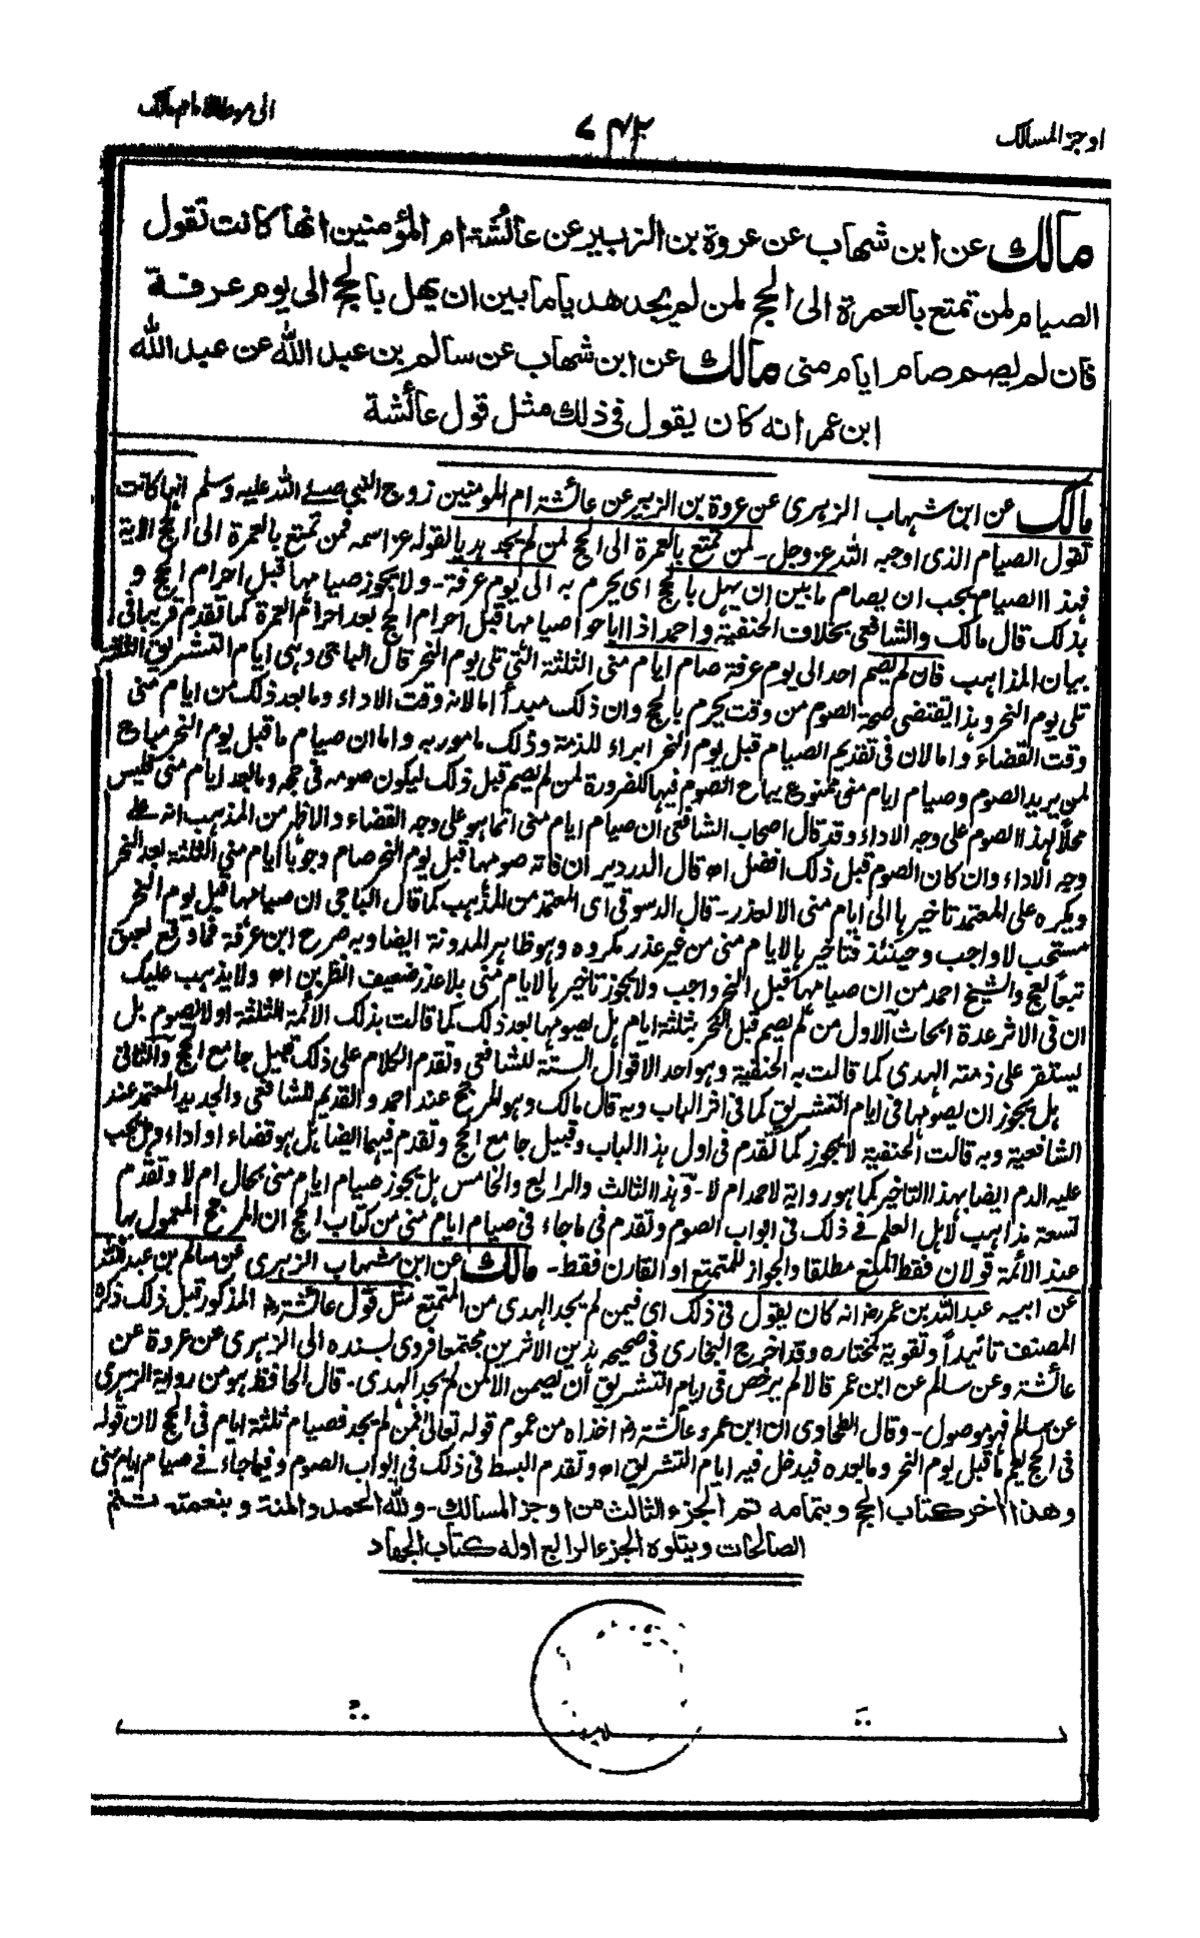 اوجز المسالك
٧٤٢
الى موطا الامام مالك
مالك عن ابن شهاب عن عروة بن الزبير عن عائشة ام المؤمنين انها كانت تقول
الصيام لمن تمتع بالعمرة الى الحج لمن لم يجد هديا ما بين ان يهل بالحج الى يوم عرفة
فان لم يصم صام ايام منى مالك عن ابن شهاب عن سالم بن عبد الله عن عبد الله
ابن عمر انه كان يقول فى ذلك مثل قول عائشة
مالك عن ابن شهاب الزهرى عن عروة بن الزبير عن عائشة ام المومنين زوج النبى صلے الله عليه وسلم انها كانت
تقول الصيام الذى اوجبه الله عز وجل - لمن تمتع بالعمرة الى الحج لمن لم يجد هديا لقوله عز اسمه فمن تمتع بالعمرة الى الحج الاية
فهذا الصيام يجب ان يصام ما بين ان يهل بالحج اى يحرم به الى يوم عرفة - ولا يجوز صيامها قبل احرام الحج و
بذلك قال مالك والشافعى بخلاف الحنفية واحمد اذ اباحوا صيامها قبل احرام الحج بعد احرام العمرة كما تقدم قريبا فى
بيان المذاهب فان لم يصم احد الى يوم عرفة صام ايام منى الثلثة التى تلى يوم النحر قال الباجى وهى ايام التشريق الثلثة
تلى يوم النحر وهذا يقتضى صحة الصوم من وقت يحرم بالحج وان ذلك مبدأ اما لانه وقت الاداء وما بعد ذلك من ايام منى
وقت القضاء واما لان فى تقديم الصيام قبل يوم النحر ابراء للذمة وذلك مامور به واما ان صيام ما قبل يوم النحر مباح
لمن يريد الصوم وصيام ايام منى ممنوع يباح الصوم فيها للضرورة لمن لم يصم قبل ذلك ليكون صومه فى حجه وما بعد ايام منى فليس
محلا لهذا الصوم على وجه الاداء وقد قال اصحاب الشافعى ان صيام ايام منى انما هو على وجه القضاء والاظهر من المذهب انه علے
وجه الاداء وان كان الصوم قبل ذلك افضل اه قال الدردير ان فاته صومها قبل يوم النحر صام وجوبا ايام منى الثلثة بعد النحر
ويكره على المعتمد تاخيرها الى ايام منى الا لعذر - قال الدسوقى اى المعتمد من المذهب كما قال الباجى ان صيامها قبل يوم النحر
مستحب لا واجب وحينئذ فتاخيرها لايام منى من غير عذر مكروه وهو ظاهر المدونة ايضا وبه صرح ابن عرفة فما وقع لعبق
تبعا لعج والشيخ احمد من ان صيامها قبل النحر واجب ولا يجوز تاخيرها لايام منى بلا عذر ضعيف انظر بن اه ولا يذهب عليك
ان فى الاثر عدة ابحاث الاول من لم يصم قبل النحر بثلثة ايام هل يصومها بعد ذلك كما قالت بذلك الائمة الثلثة او لا لصوم بل
يستقر على ذمته الهدى كما قالت به الحنفية وهو احد الاقوال الستة للشافعى وتقدم الكلام على ذلك قبيل جامع الحج والثانى
هل يجوز ان يصومها فى ايام التشريق كما فى اثر الباب وبه قال مالك وهو المرجح عند احمد والقديم للشافعى والجديد المعتمد عند
الشافعية وبه قالت الحنفية لا يجوز كما تقدم فى اول هذا الباب وقبيل جامع الحج وتقدم فيهما ايضا هل هو قضاء او اداء وهل يجب
عليه الدم ايضا بهذا التاخير كما هو رواية لاحمد ام لا - وهذا الثالث والرابع والخامس هل يجوز صيام ايام منى بحال ام لا وتقدم
تسعة مذاهب لاهل العلم فے ذلك فى ابواب الصوم وتقدم فى ما جاء فى صيام ايام منى من كتاب الحج ان المرجح المعمول بها
عند الائمة قولان فقط المنع مطلقا والجواز للمتمتع او القارن فقط - مالك عن ابن شهاب الزهرى عن سالم بن عبد الله
عن ابيه عبد الله بن عمر رض انه كان يقول فى ذلك اى فيمن لم يجد الهدى من المتمتع مثل قول عائشة رض المذكور قبل ذلك ذكره
المصنف تائيدا وتقوية لمختاره وقد اخرج البخارى فى صحيحه هذين الاثرين مجتمعا فروى بسنده الى الزهرى عن عروة عن
عائشة وعن سالم عن ابن عمر قالا لم يرخص فى ايام التشريق ان يصمن الا لمن لم يجد الهدى - قال الحافظ هو من رواية الزهرى
عن سالم فهو موصول - وقال الطحاوى ان ابن عمر وعائشة رض اخذاه من عموم قوله تعالى فمن لم يجد فصيام ثلثة ايام فى الحج لان قوله
فى الحج يعم ما قبل يوم النحر وما بعده فيدخل فيه ايام التشريق اه وتقدم البسط فى ذلك فى ابواب الصوم وفيما جاء فے صيام ايام منى
وهذا اخر كتاب الحج وبتمامه تم الجزء الثالث من اوجز المسالك - ولله الحمد والمنة وبنعمته تتم
الصالحات ويتلوه الجزء الرابع اوله كتاب الجهاد